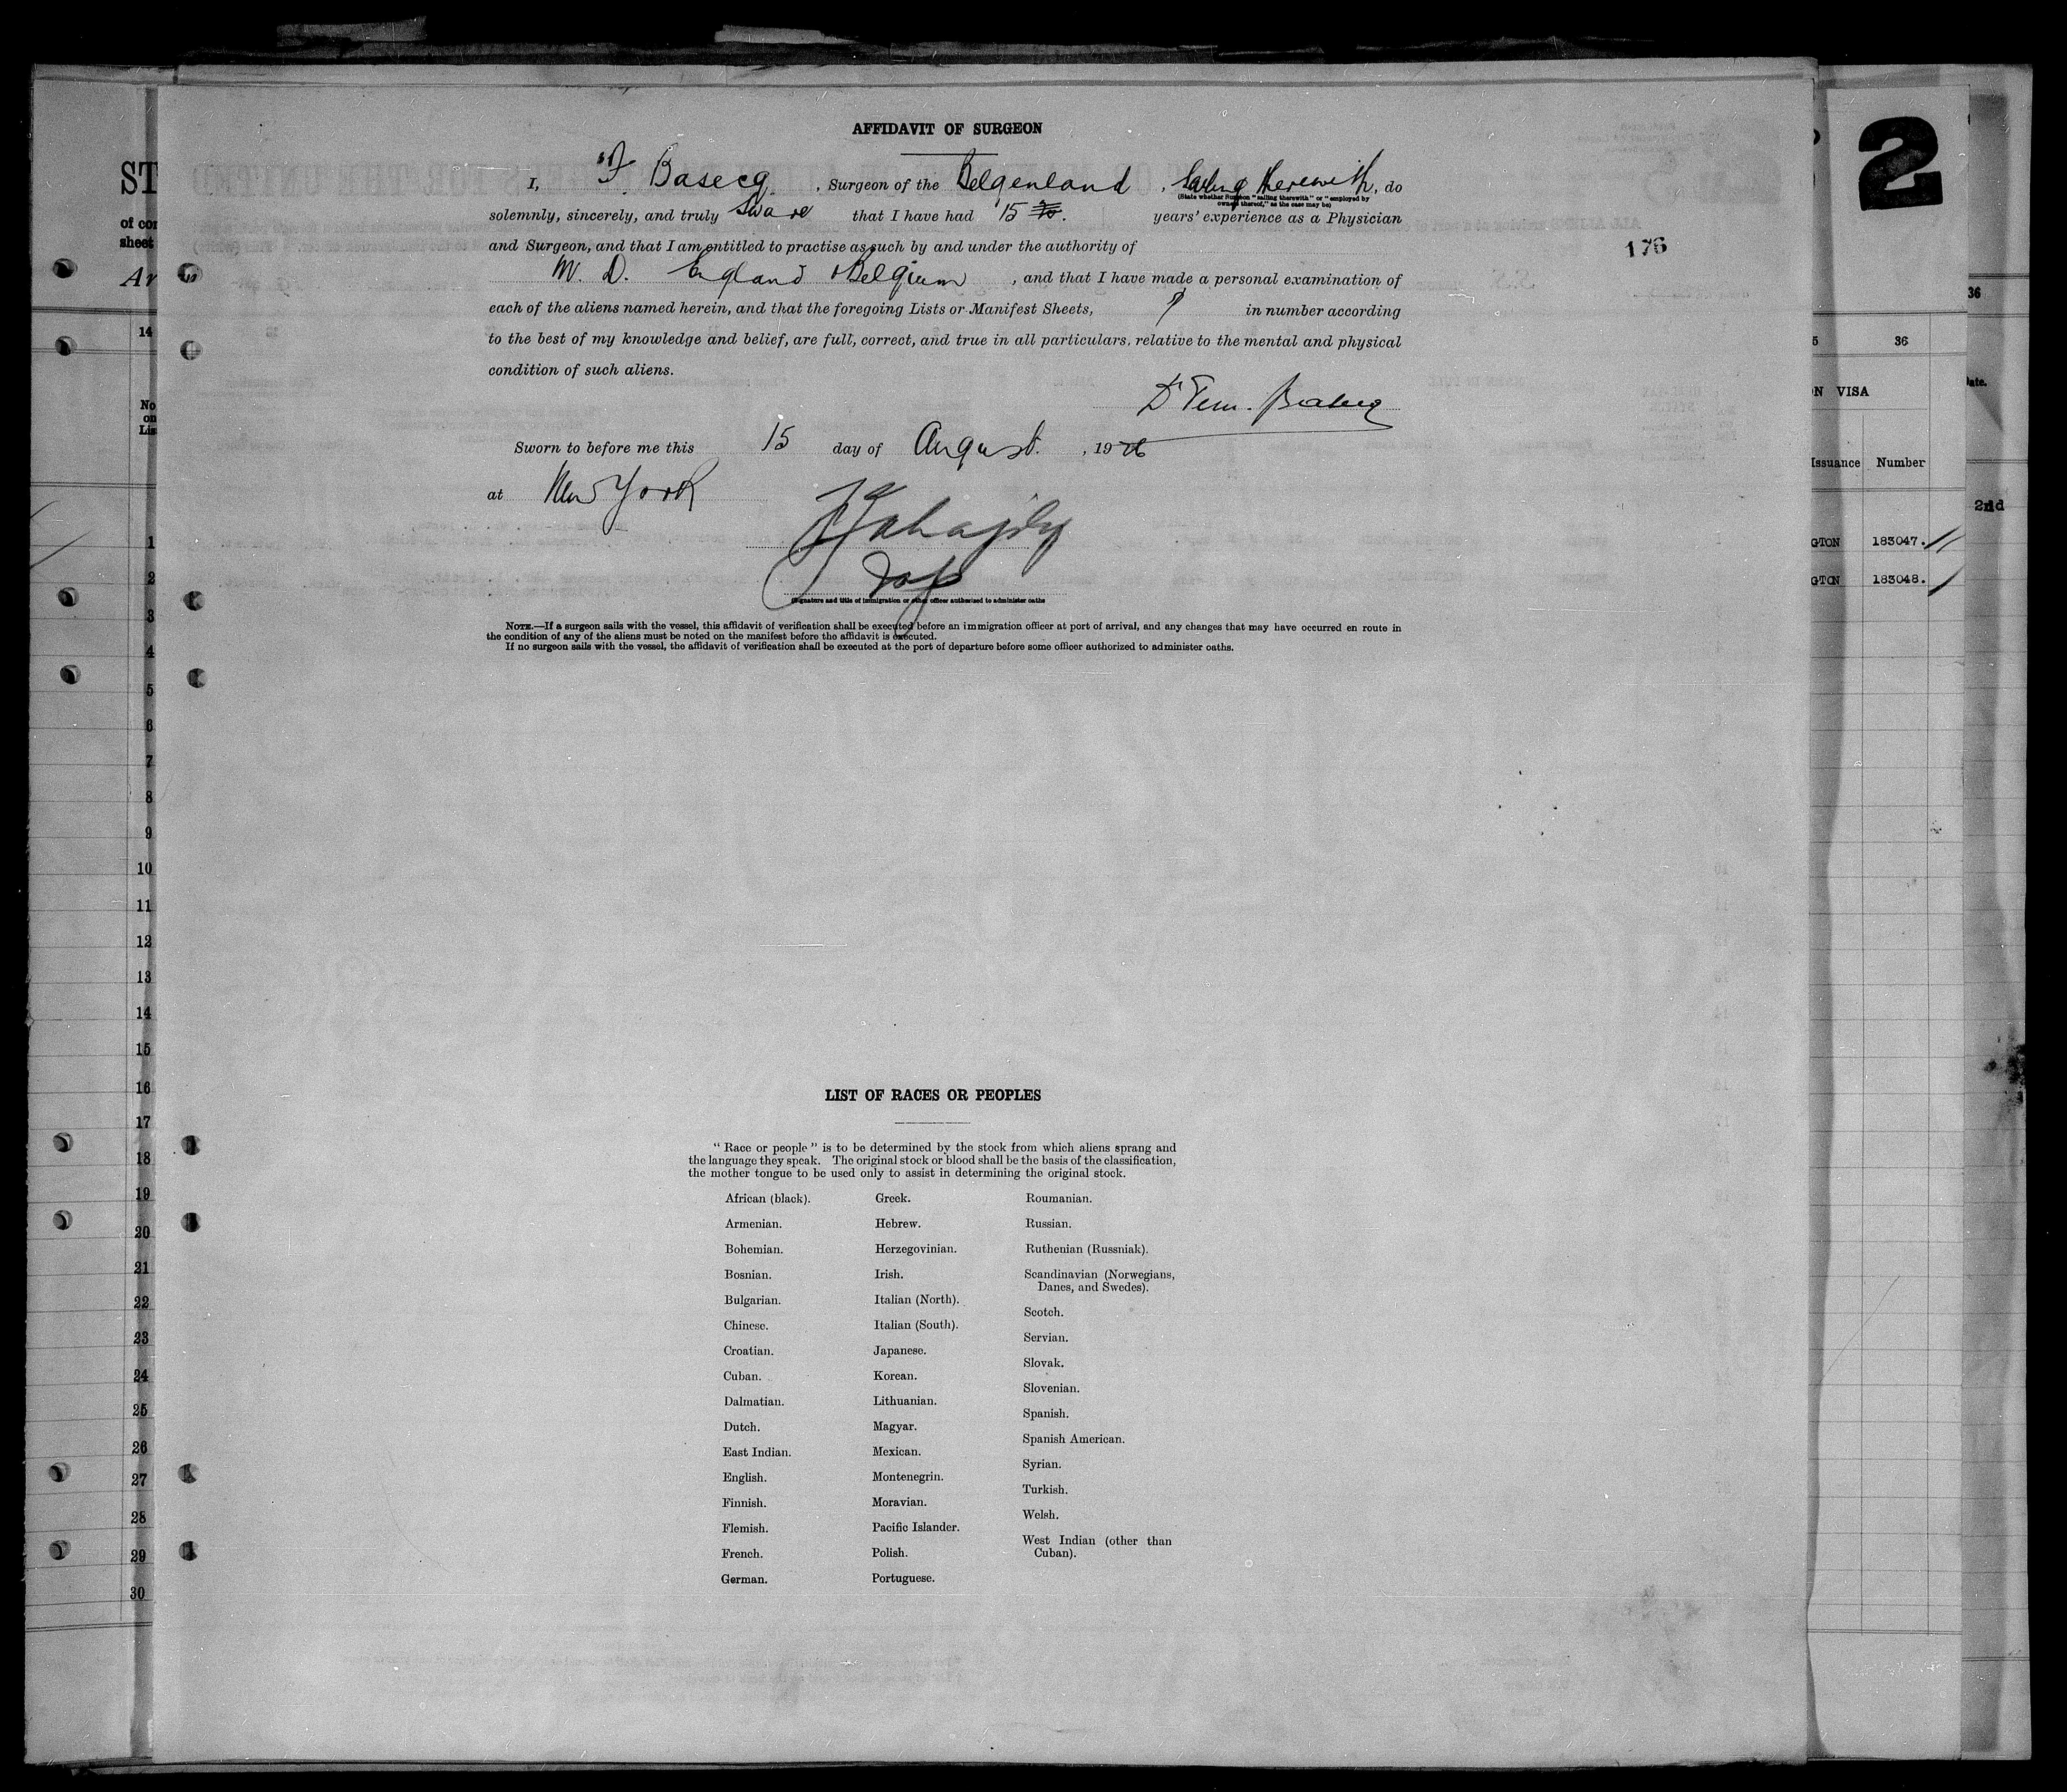 AFFIDAVIT OF SURGEON
I, F. Basecq, Surgeon of the Belgenland, Sailing therewith, do
(State whether Surgeon "sailing therewith" or "employed by
owners thereof," as the case may be)
solemnly, sincerely, and truly Sware that I have had 15 years' experience as a Physician
and Surgeon, and that I am entitled to practise as such by and under the authority of
M. D. England & Belgium, and that I have made a personal examination of
each of the aliens named herein, and that the foregoing Lists or Manifest Sheets, in number according
to the best of my knowledge and belief, are full, correct, and true in all particulars, relative to the mental and physical
condition of such aliens.
Dr
Sworn to before me this 15 day of August, 1926
at New York
(Signature and title of immigration or other officer authorized to administer oaths
NOTE.—If a surgeon sails with the vessel, this affidavit of verification shall be executed before an immigration officer at port of arrival, and any changes that may have occurred en route in
the condition of any of the aliens must be noted on the manifest before the affidavit is executed.
If no surgeon sails with the vessel, the affidavit of verification shall be executed at the port of departure before some officer authorized to administer oaths.
LIST OF RACES OR PEOPLES
"Race or people" is to be determined by the stock from which aliens sprang and
the language they speak. The original stock or blood shall be the basis of the classification,
the mother tongue to be used only to assist in determining the original stock.
African (black).
Armenian.
Bohemian.
Bosnian.
Bulgarian.
Chinese.
Croatian.
Cuban.
Dalmatian.
Dutch.
East Indian.
English.
Finnish.
Flemish.
French.
German.
Greek.
Hebrew.
Herzegovinian.
Irish.
Italian (North).
Italian (South).
Japanese.
Korean.
Lithuanian.
Magyar.
Mexican.
Montenegrin.
Moravian.
Pacific Islander.
Polish.
Portuguese.
Roumanian.
Russian.
Ruthenian (Russniak).
Scandinavian (Norwegians,
Danes, and Swedes).
Scotch.
Servian.
Slovak.
Slovenian.
Spanish.
Spanish American.
Syrian.
Turkish.
Welsh.
West Indian (other than
Cuban).
176
2
ST
of con
sheet
Ar
14
No
on
Lis
1
2
3
4
5
6
7
8
9
10
11
12
13
14
15
16
17
18
19
20
21
22
23
24
25
26
27
28
29
30
5
36
N VISA
Issuance
Number
GTON 183047.
GTON 183048.
36
ate.
2nd